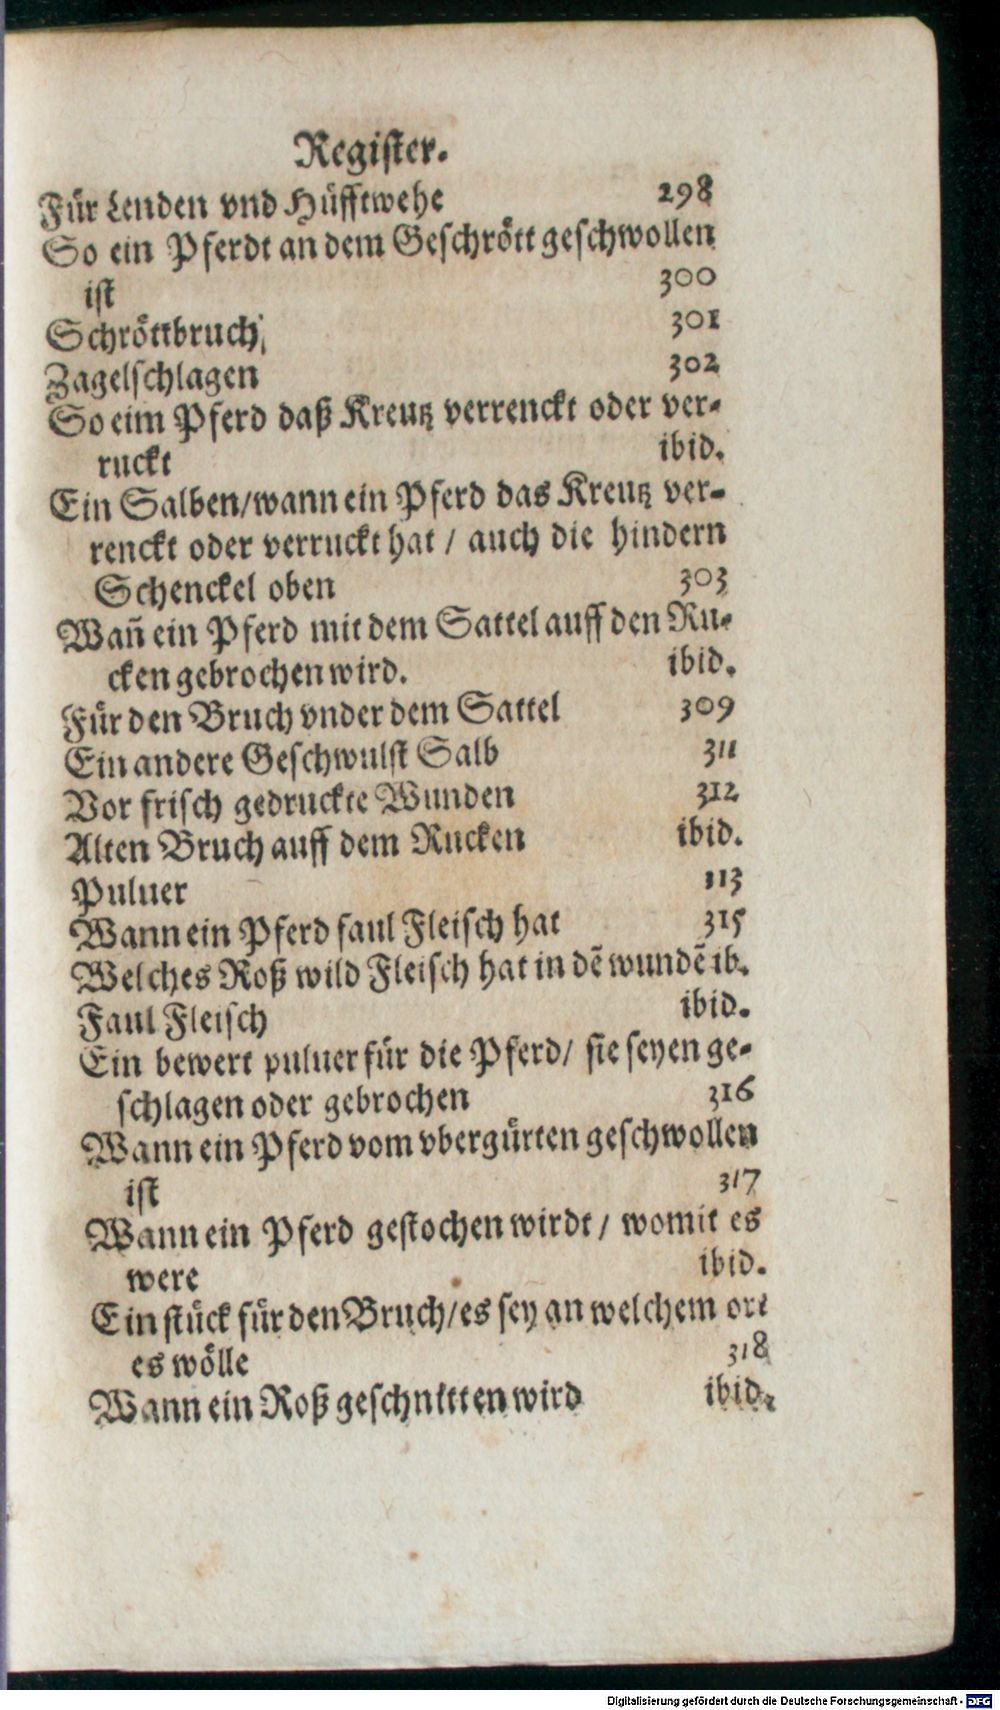 Register.
Für Lenden vnd Hüfftwehe 298
So ein Pferdt an dem Geschrött geschwollen
ist 300
Schröttbruch, 301
Zagelschlagen 302
So eim Pferd daß Kreutz verrenckt oder ver-
ruckt ibid.
Ein Salben/wann ein Pferd das Kreutz ver-
renckt oder verruckt hat / auch die hindern
Schenckel oben 303
Wañ ein Pferd mit dem Sattel auff den Ru-
cken gebrochen wird. ibid.
Für den Bruch vnder dem Sattel 309
Ein andere Geschwulst Salb 311
Vor frisch gedruckte Wunden 312
Alten Bruch auff dem Rucken ibid.
Puluer 113
Wann ein Pferd faul Fleisch hat 315
Welches Roß wild Fleisch hat in dẽ wundẽ ib.
Faul Fleisch ibid.
Ein bewert puluer für die Pferd/ sie seyen ge-
schlagen oder gebrochen 316
Wann ein Pferd vom vbergürten geschwollen
ist 317
Wann ein Pferd gestochen wirdt / womit es
were ibid.
Ein stück für den Bruch/es sey an welchem ort
es wölle 318
Wann ein Roß geschnitten wird ibid.
Digitalisierung gefördert durch die Deutsche Forschungsgemeinschaft - DFG